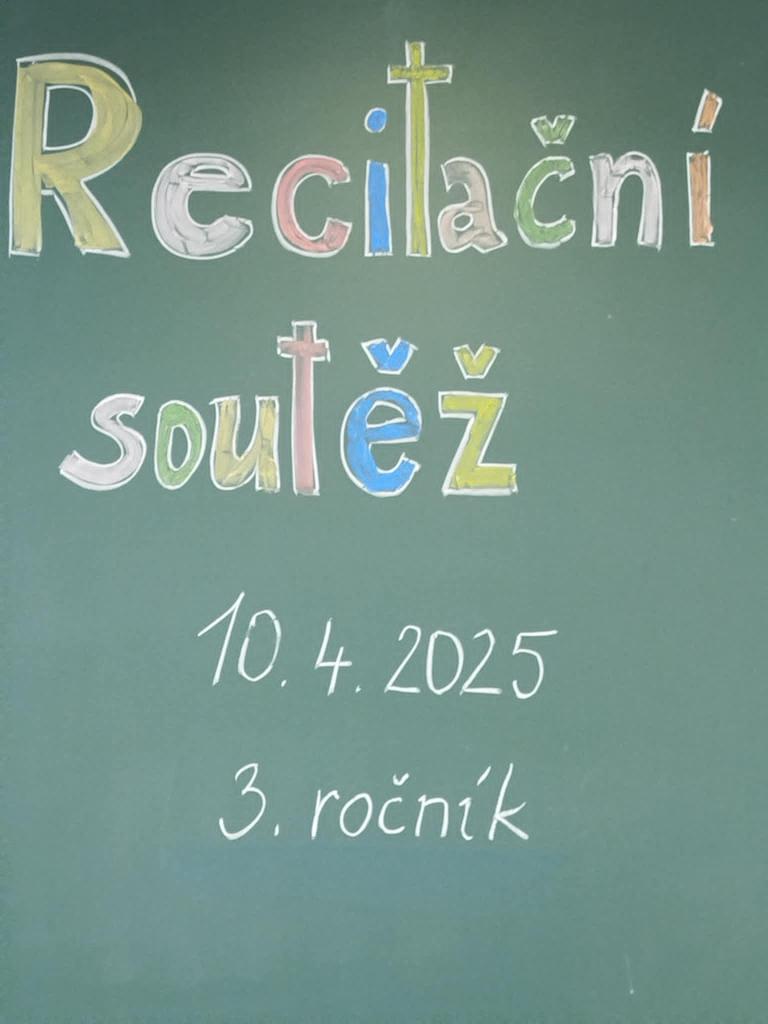 Recitační
soutěž
10. 4. 2025
3. ročník